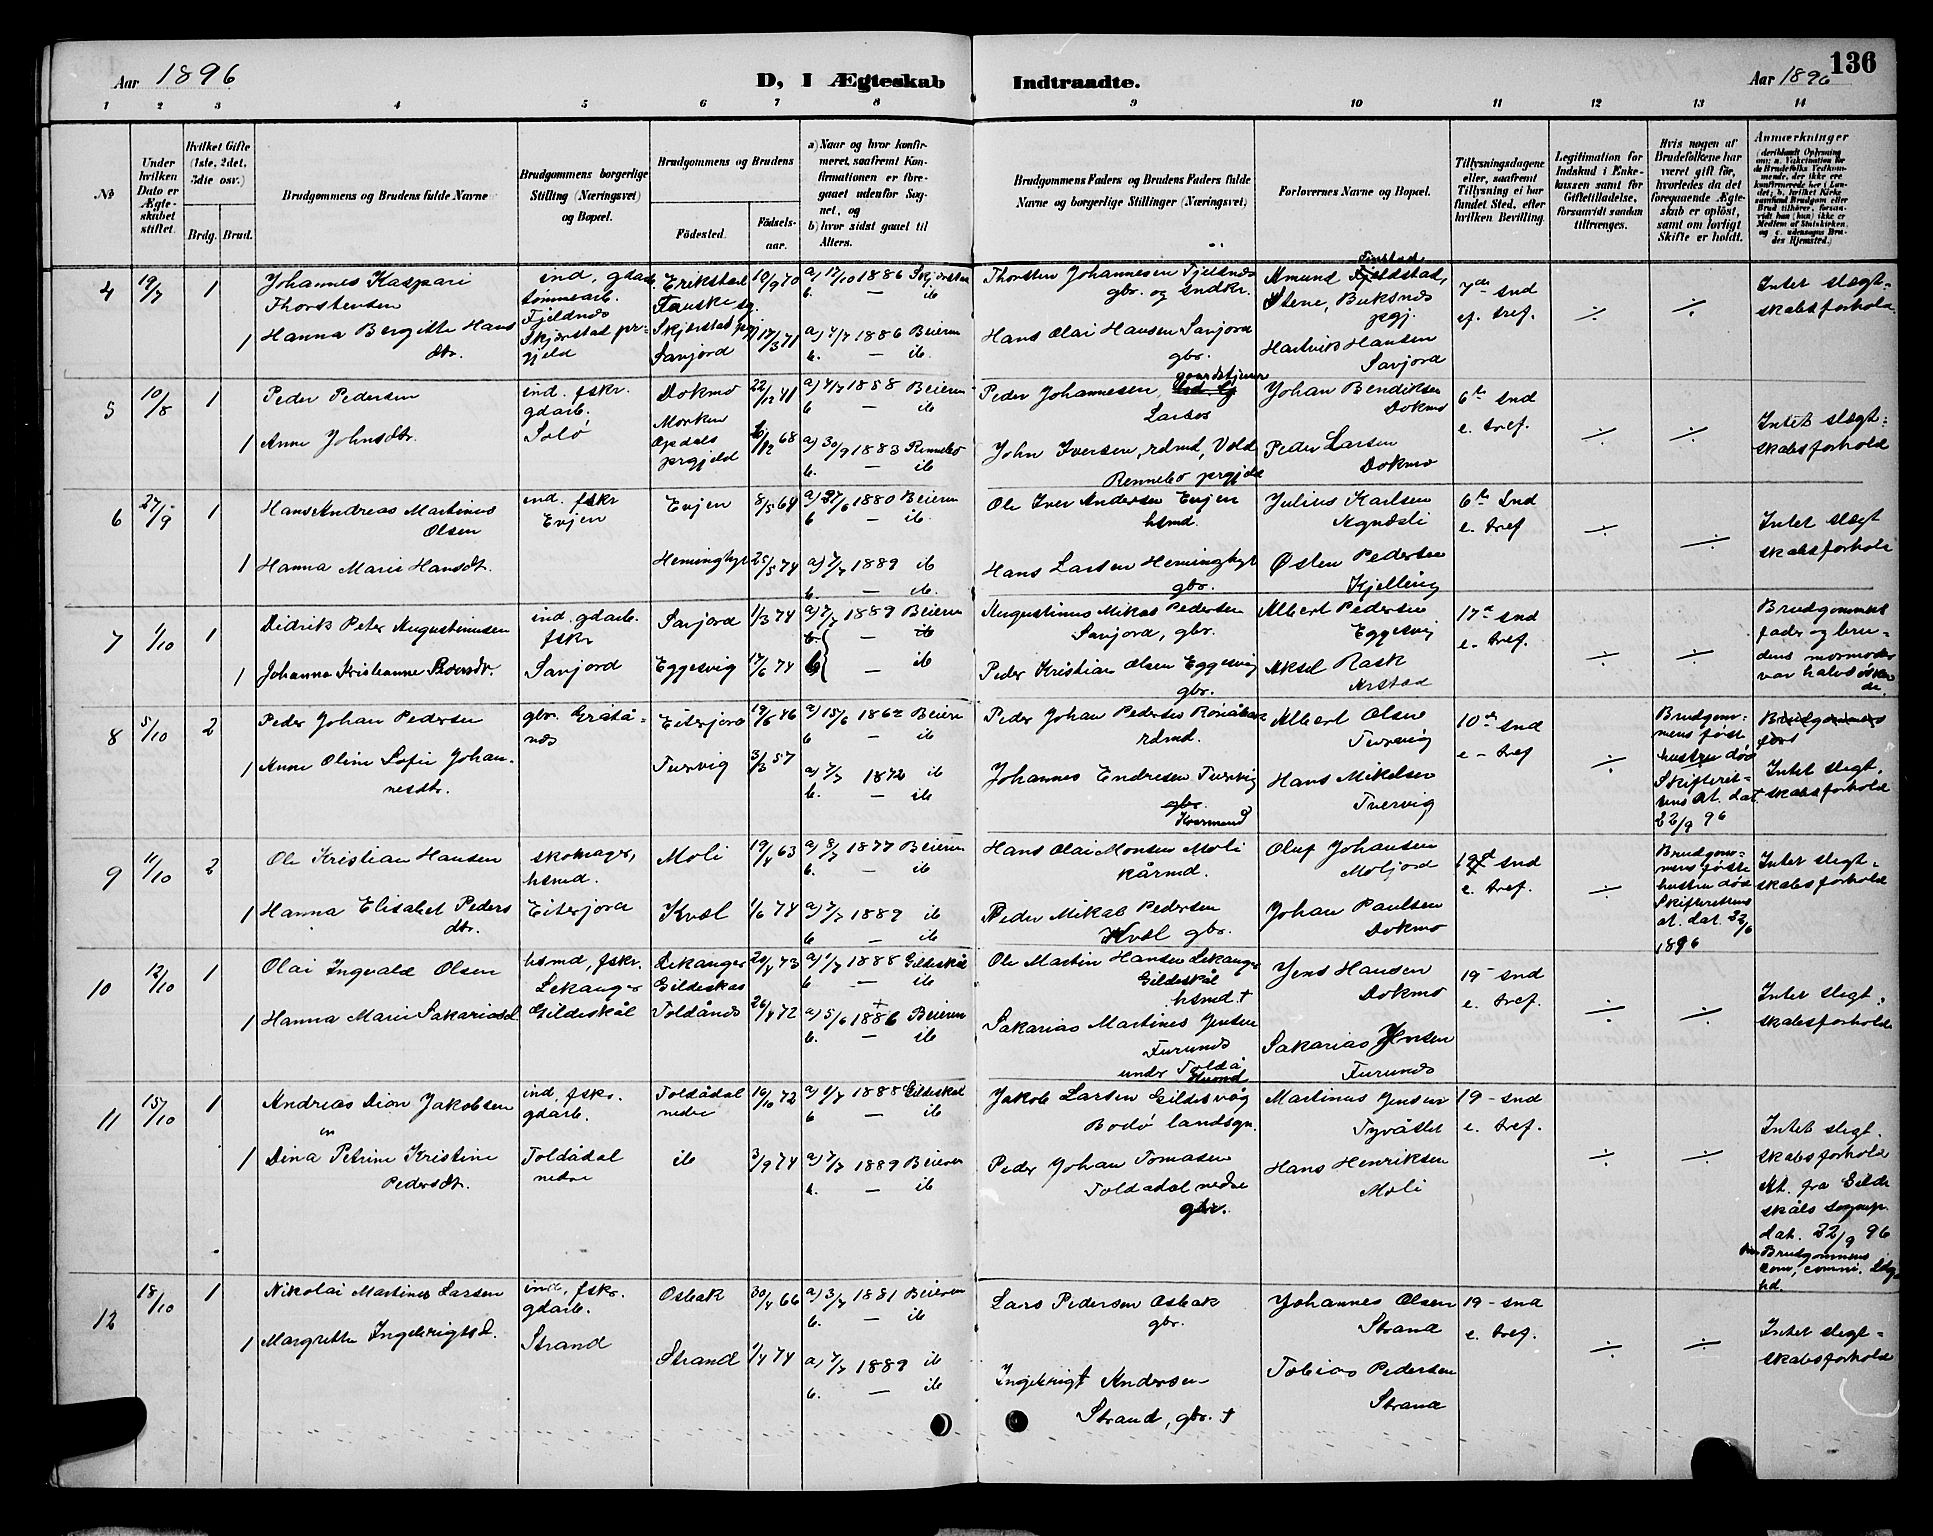 Aar 1896
D, I Ægteskab Indtraadte.
Aar 1896
136
1 2 3 4 5 6 7 8 9 10 11 12 13 14
No
Under hvilken Dato er Ægteskabet stiftet.
Hvilket Gifte (1ste, 2det, 3die osv.)
Brdg. Brud.
Brudgommens og Brudens fulde Navne
Brudgommens borgerlige Stilling (Næringsvei) og Bopæl.
Brudgommens og Brudens
Födested. Födselsaar.
a) Naar og hvor konfirmeret, saafremt Konfirmationen er foregaaet udenfor Sognet, og
b) hvor sidst gaaet til Alters.
Brudgommens Faders og Brudens Faders fulde Navne og borgerlige Stillinger (Næringsvei)
Forlovernes Navne og Bopæl.
Tillysningsdagene eller, saafremt Tillysning ei har fundet Sted, efter hvilken Bevilling.
Legitimation for Indskud i Enkekassen samt for Giftetilladelse, forsaavidt saadan tiltrænges.
Hvis nogen af Brudefolkene har været gift för, hvorledes da det foregaaende Ægteskab er oplöst, samt om lovligt Skifte er holdt.
Anmærkninger
4 19/7 1 Johannes Kaspari Thorstensen
ind, gdarb. Fjeldnæs Skjerstad prgjeld
Fauske sg. 10/9 70
a) 17/10 1886 Skjerstad
b. — ib
Thorsten Johannesen Fjeldnæs gbr. og indkr.
Amund Stene, Buksnæs prgj.
7de snd ef. tref.
÷ ÷
Intet slægtskabsforhold.
1 Hanna Bergitte Hansdtr.
Skjerstad pgj Savjord 17/3 71
a) 4/7 1886 Beieren
b. — ib.
Hans Olai Hansen Savjord gbr.
Hartvik Hansen Savjord
5 10/8 1 Peder Pedersen
ind. fskr. gdarb. Solö
Dokmo 22/12 41
a) 4/7 1858 Beieren
b — ib
Peder Johannesen, gaardstjener Larsos
Johan Bendiksen Dokmo
6te snd e. tref.
÷ ÷
Intet slægtskabsforhold
1 Anne Johnsdtr.
Morken Opdals prgjeld 68
a) 30/9 1883 Rennebo
b. — ib
John Iversen, rdmd, Vold Rennebo prgjeld
Peder Larsen Dokmo
6 27/9 1 Hans Andreas Martinus Olsen
ind. fskr Evjen
Evjen 8/5 64
a) 27/6 1880 Beieren
b — ib.
Ole Iver Andersen Evjen hsmd.
Julius Karlsen Agnæsli
6te snd e. tref
÷ ÷
Intet slægtskabsforhold
1 Hanna Marie Hansdt.
Heminghyt 25/5 74
a) 7/7 1889 ib
b. — ib.
Hans Larsen Heminghyt gbr.
Østen Pedersen Kjelling
7 1/10 1 Didrik Peter Augustinusen
ind. gdarb. fskr Savjord
Savjord 1/3 74
a) 7/7 1889 Beieren
b. — ib
Augustinus Mikal Pedersen Savjord, gbr.
Albert Pedersen Eggesvig
17d snd e. tref.
÷ ÷
Brudgommens fader og brudens mormoder var halvsöskende
1 Johanna Kristianne Pedersdtr.
Eggesvig 17/6 74
— ib
Peder Kristian Olsen Eggesvig gbr.
Aksel Rask Arstad
8 5/10 2 Peder Johan Pedersen
gbr. Gråtånæs
Eiterjord 19/6 46
a) 15/6 1862 Beieren
b — ib
Peder Johan Pedersen rdmd.
Albert Olsen Tvervig
10de snd e – tref
÷
Brudgommens föste hustru död Skifterettens at. dat 22/9 96
Intet slegtskabsforhold
1 Anne Oline Sofie Johannesdtr.
Tvervig 3/3 57
a) 7/7 1872 ib
b. — ib
Johannes Endresen Tvervig gbr.
Hans Mikelsen Tvervig
9 11/10 2 Ole Kristian Hansen
skomager, hsmd. Eiterjord
Moli 19/4 63
a) 8/7 1877 Beieren
b. — ib
Hans Olai Monsen Moli kårmd.
Oluf Johansen Moljord
snd e. tref.
÷
Brudgommens föste hustru död Skifterettens at. dat. 22/6 1896
Intet slegtskabsforhold
1 Hanna Elisabet Pedersdtr.
Kvæl 1/6 74
a) 7/7 1889 ib
b — ib
Peder Mikal Pedersen Kvæl gbr.
Johan Paulsen Dokmo
10 12/10 1 Olai Ingvald Olsen
hsmd, fskr. Lekanger Gildeskål
Lekanger Gildeskål 20/4 73
a) 1/7 1888 Gildeskål
b — ib
Ole Martin Hansen Lekanger Gildeskål hsmd †
Jens Hansen Dokmo
19 – snd e. tref.
÷ ÷
Intet slegtskabsforhold
1 Hanna Marie Sakariasd
Toldånæs 26/4 72
a) 5/6 1886 Beieren
b. — ib
Sakarias Martines Jensen Furunæs under Toldå
Sakarias Jensen Furunæs
11 15/10 1 Andreas Dion Jakobsen
ind, fskr. gdarb. Toldådal nedre
Toldådal nedre 19/10 72
a) 1/7 1888 Gildeskål
b — ib
Jakob Larsen Gildesvåg Bodö landsgn.
Martinus Jensen Tyvåslet
19 – snd e. tref.
÷ ÷
Intet slegtskabsforhold
At. fra Gildeskåls sognep. dat. 22/9 96
1 Dina Petrine Kristine Pedersdtr.
ib 3/9 74
a) 7/7 1889 Beieren
b. — ib
Peder Johan Tomasen Toldådal nedre gbr.
Hans Henriksen Moli
12 18/10 1 Nikolai Martines Larsen
ind, fskr. gdarb. Strand
Osbak 30/4 66
a) 3/7 1881 Beieren
b. — ib
Lars Pedersen Osbak gbr.
Johannes Olsen Strand
19 – snd e. tref.
÷ ÷
Intet slegtskabsforhold
1 Margrethe Ingebrigtsd.
Strand 1/4 74
a) 7/7 1889 ib
b. — ib
Ingebrigt Andersen Strand, gbr. †
Tobias Pedersen Strand